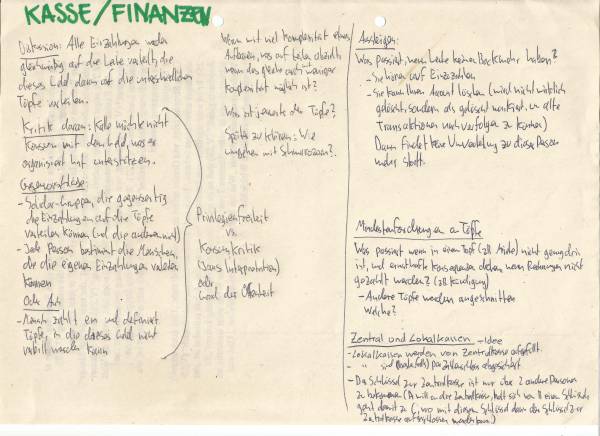 KASSE/FINANZEN
Diskussion: Alle Einzahlungen werden
gleichmäßig auf die Leute verteilt, die
dieses Geld dann auf die unterschiedlichen
Töpfe verteilen.
Kritik daran: Kole möchte nicht
Konsum mit dem Geld, was er
organisiert hat unterstützen.
Gegenvorschläge:
- Solidar-Gruppen, die gegenseitig
die Einzahlungen auf die Töpfe
verteilen können (und die anderen nicht)
- Jede Person bestimmt die Menschen,
die die eigenen Einzahlungen verteilen
können
Oder Auch
- Mensch zahlt ein und definiert
Töpfe, in die dieses Geld nicht
verteilt werden kann
Privilegienfreiheit
vs.
Konsumkritik
(Jans Interpretation)
oder
und der Offenheit
Wem mit viel Komplexität etwas
aufbauen, was auf Leute abschreckt,
wenn das gleiche auch mit weniger
Komplexität möglich ist?
Was ist jenseits der Töpfe?
Später zu klären: Wie
umgehen mit Schmarozern?
Aussteigen:
Was passiert, wenn Leute keinen Bock mehr haben?
- Sie hören auf Einzuzahlen
- Sie kann ihren Account löschen (wird nicht wirklich
gelöscht, sondern als gelöscht markiert, um alte
Transaktionen nachverfolgen zu können)
Dann findet keine Umverteilung zu dieser Person
mehr statt.
Mindestanforderungen an Töpfe
Was passiert wenn in einem Topf (zB Miete) nicht genug drin
ist, und ernsthafte Konsequenzen drohen, wenn Rechnungen nicht
gezahlt werden? (zB Kündigung)
- Andere Töpfe werden angeschnitten
Welche?
Zentral und Lokalkassen - Idee
- Lokalkassen werden von Zentralkasse aufgefüllt.
- " sind (ebenfalls) per Zahlenschloss abgesichert
- Der Schlüssel zur Zentralkasse ist nur über 2 andere Personen
zu bekommen (A will an die Zentralkasse, holt sich von B einen Schlüssel,
geht damit zu C, wo mit diesem Schlüssel dann der Schlüssel zur
Zentralkasse aufgeschlossen werden kann.)